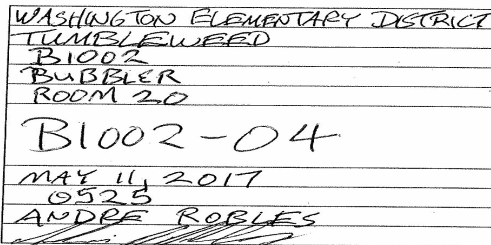 WASHINGTON ELEMENTARY DISTRICT
TUMBLEWEED
B1002
BUBBLER
ROOM 20
B1002-04
MAY 11, 2017
0525
ANDRE ROBLES